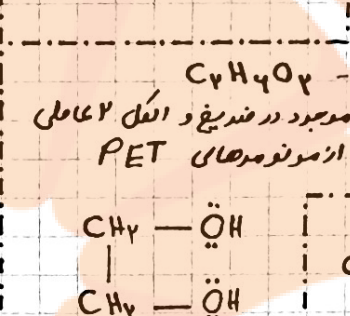 C₂H₆O₂ -
موجود در ضدیخ و الکل ۲ عاملی
از مونومرهای PET
CH₂ — ÖH
CH₂ — ÖH